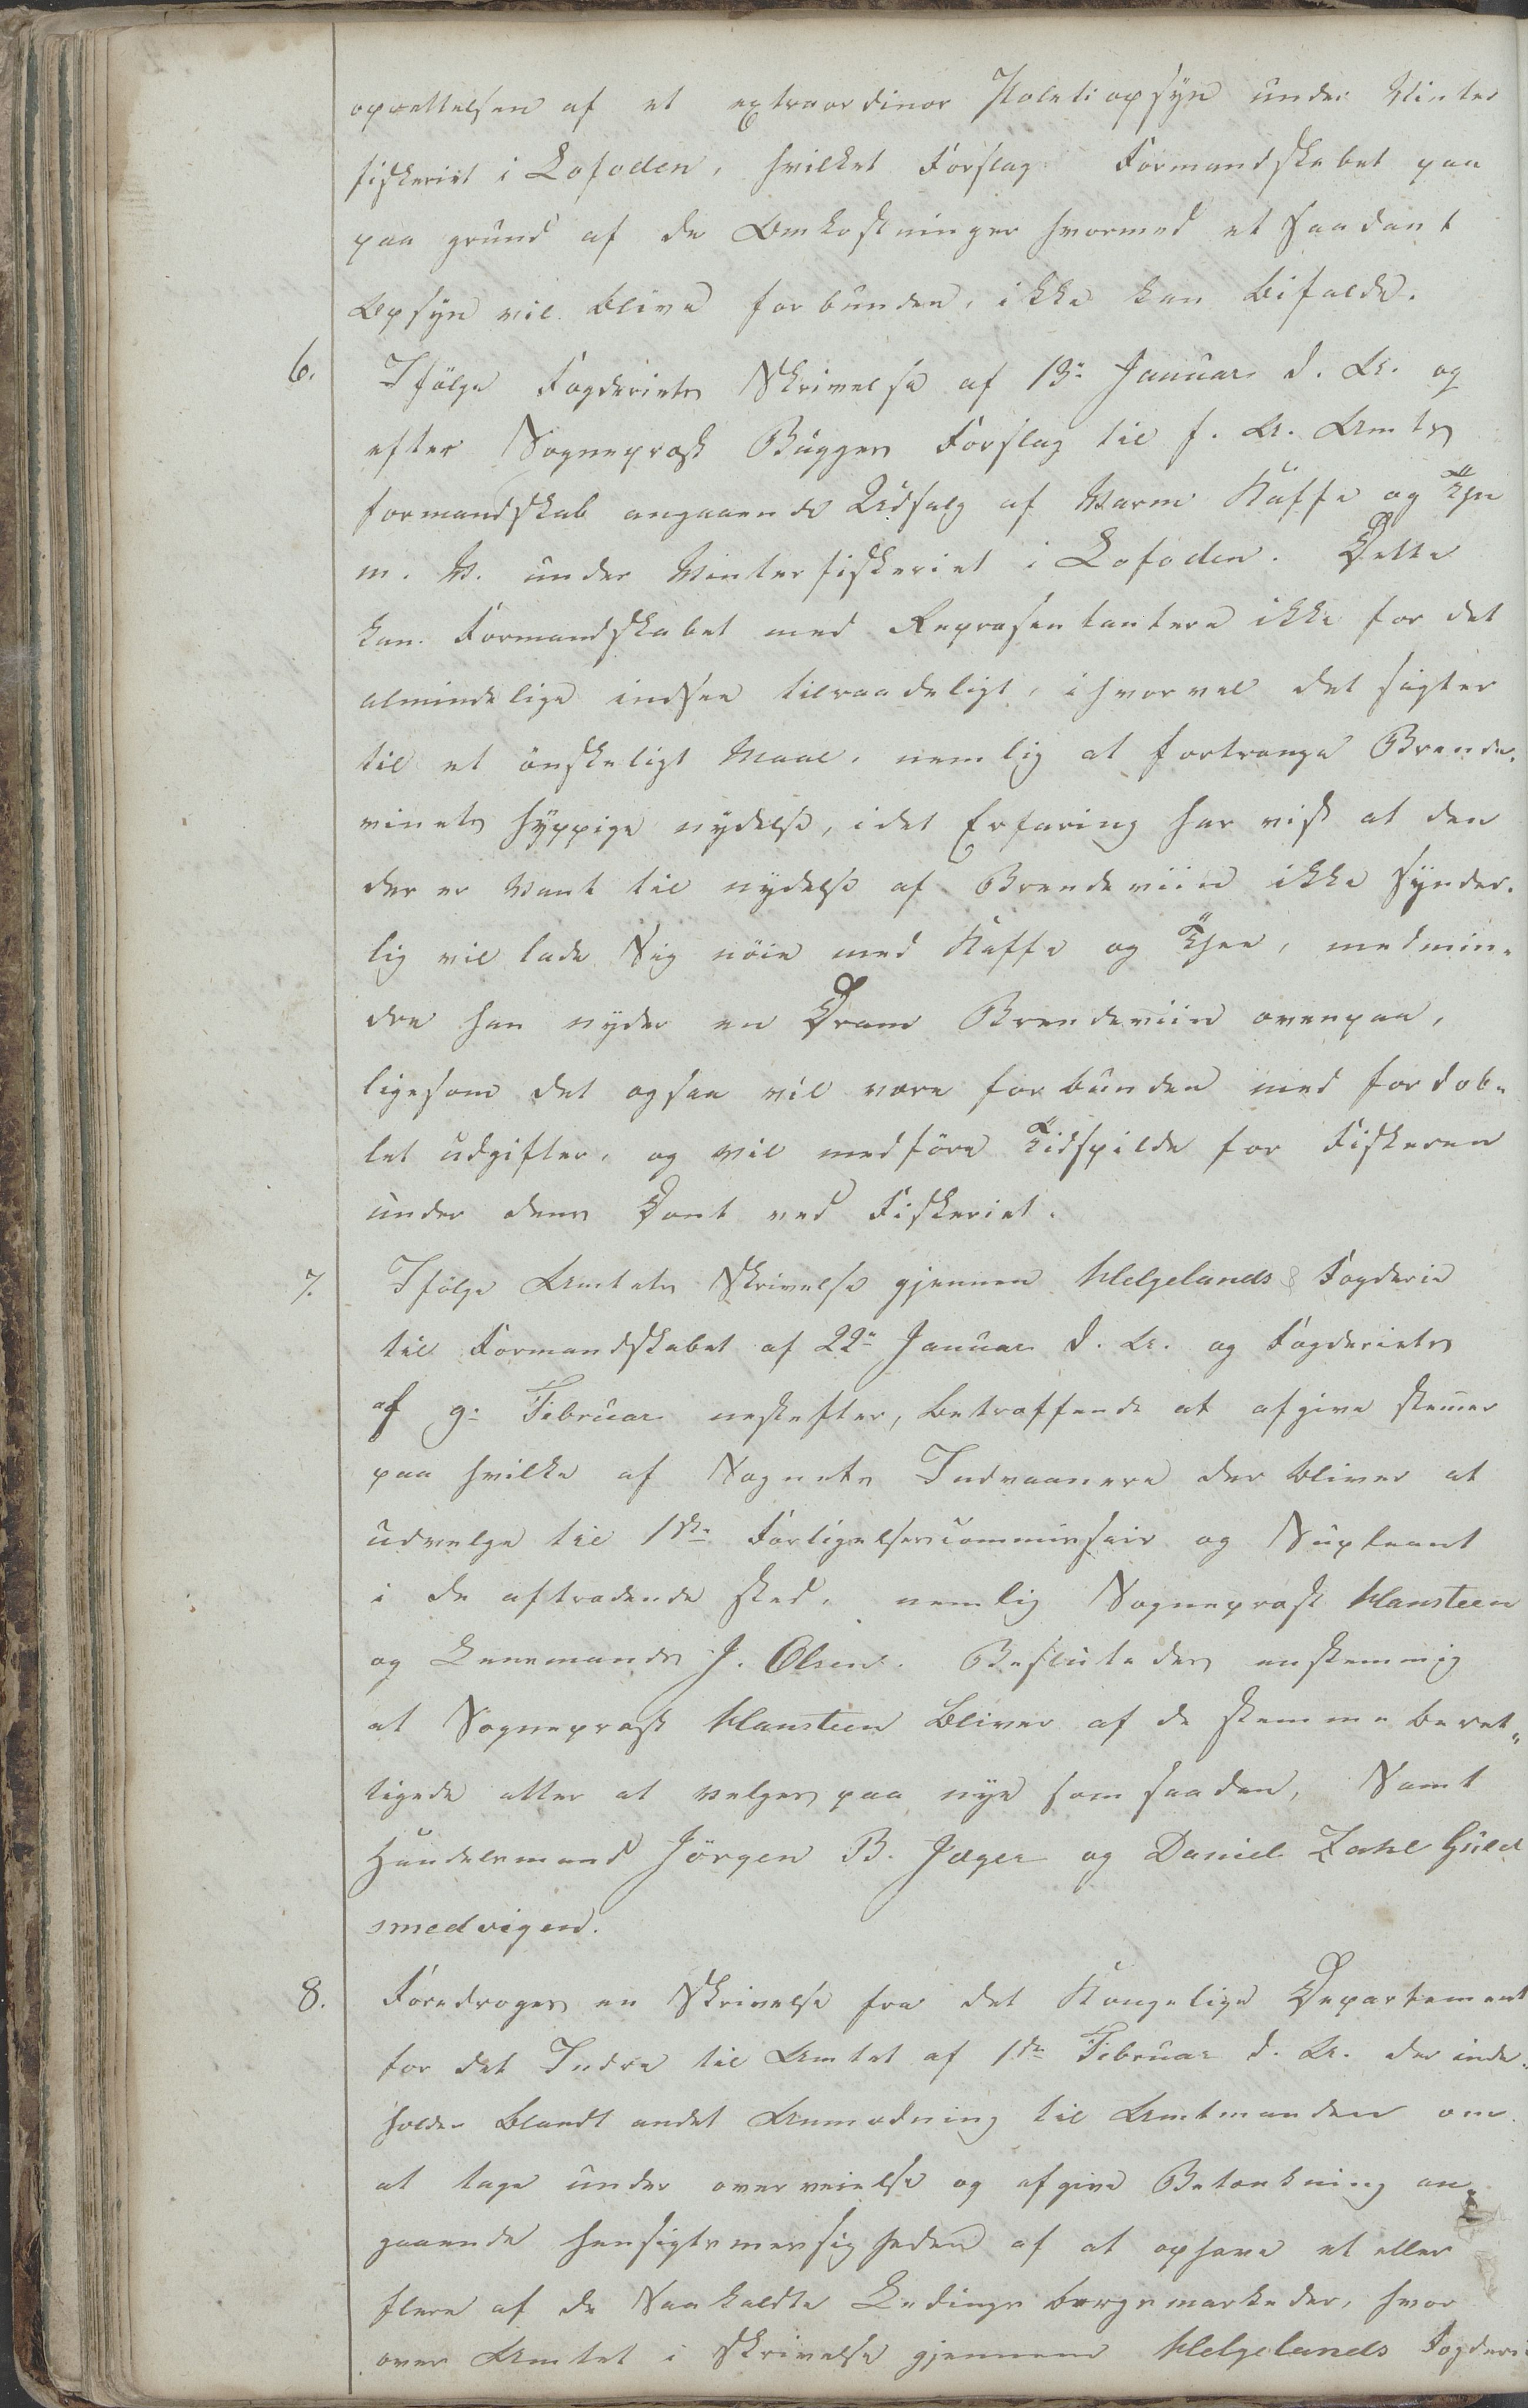 oprettelsen af et extraordinær Politiopsyn under Vinter
fiskeriet i Lofoden, hvilket Forslag Formandskabet paa
paa grund af de Omkostninger hvormed et saadant
Opsyn vil blive forbunden, ikke kan bifalde.
6. Ifölge Fogderiets Skrivelse af 13de Januar d. A. og
efter Sogneprest Bugges Forslag til f. A. Amts
formandskab angaaende Udsalg af Varm Kaffe og Thee
m. V. under Vinterfiskeriet i Lofoden. Dette
kan Formandskabet med Repræsentantere ikke for det
almindelige indsee tilraadeligt, ihvorvel det sigter
til et önskeligt Maal, nemlig at fortrænge Brende-
vinets hyppige nydelse, idet Erfaring har vist at den
der er Vant til nydelse af Brendeviin ikke synder-
lig vil lade Sig nöie med Kaffe og Thee, medmin-
dre han nyder en Dram Brendeviin ovenpaa,
ligesom det ogsaa vil være forbunden med fordob-
let udgifter, og vil medföre Tidspilde for Fiskeren
under dens Dont ved Fiskeriet.
7. Ifölge Amtets Skrivelse gjennem Helgelands Fogderie
til Formandskabet af 22de Januar d. A. og Fogderiets
af 9de Februar nestefter, betræffende at afgive stemer
paa hvilke af Sognets Indvaanere der bliver at
udvelge til 1ste Forligelsescommissair og Supleant
i de aftrædende sted, nemlig Sogneprest Hansteen
og Lensmands J. Olsen. Beslutedes enstemmig
at Sogneprest Hansteen bliver af de stemmeberet-
tigede atter at velges paa nye som saaden, Samt
Handelsmand Jörgen B. Jæger og Daniel Zahl Guld
smedvigen.
8. Foredroges en Skrivelse fra det Kongelige Departement
for det Indre til Amtet af 1ste Februar d. A. der inde-
holder blandt andet Anmodning til Amtmanden om
at tage under overveielse og afgive Betænkning an-
gaaende hensigtsmessigheden af at ophæve et eller
flere af de Saakaldte Ledingsbergsmarkeder, hvor
over Amtet i Skrivelse gjennem Helgelands Fogderi